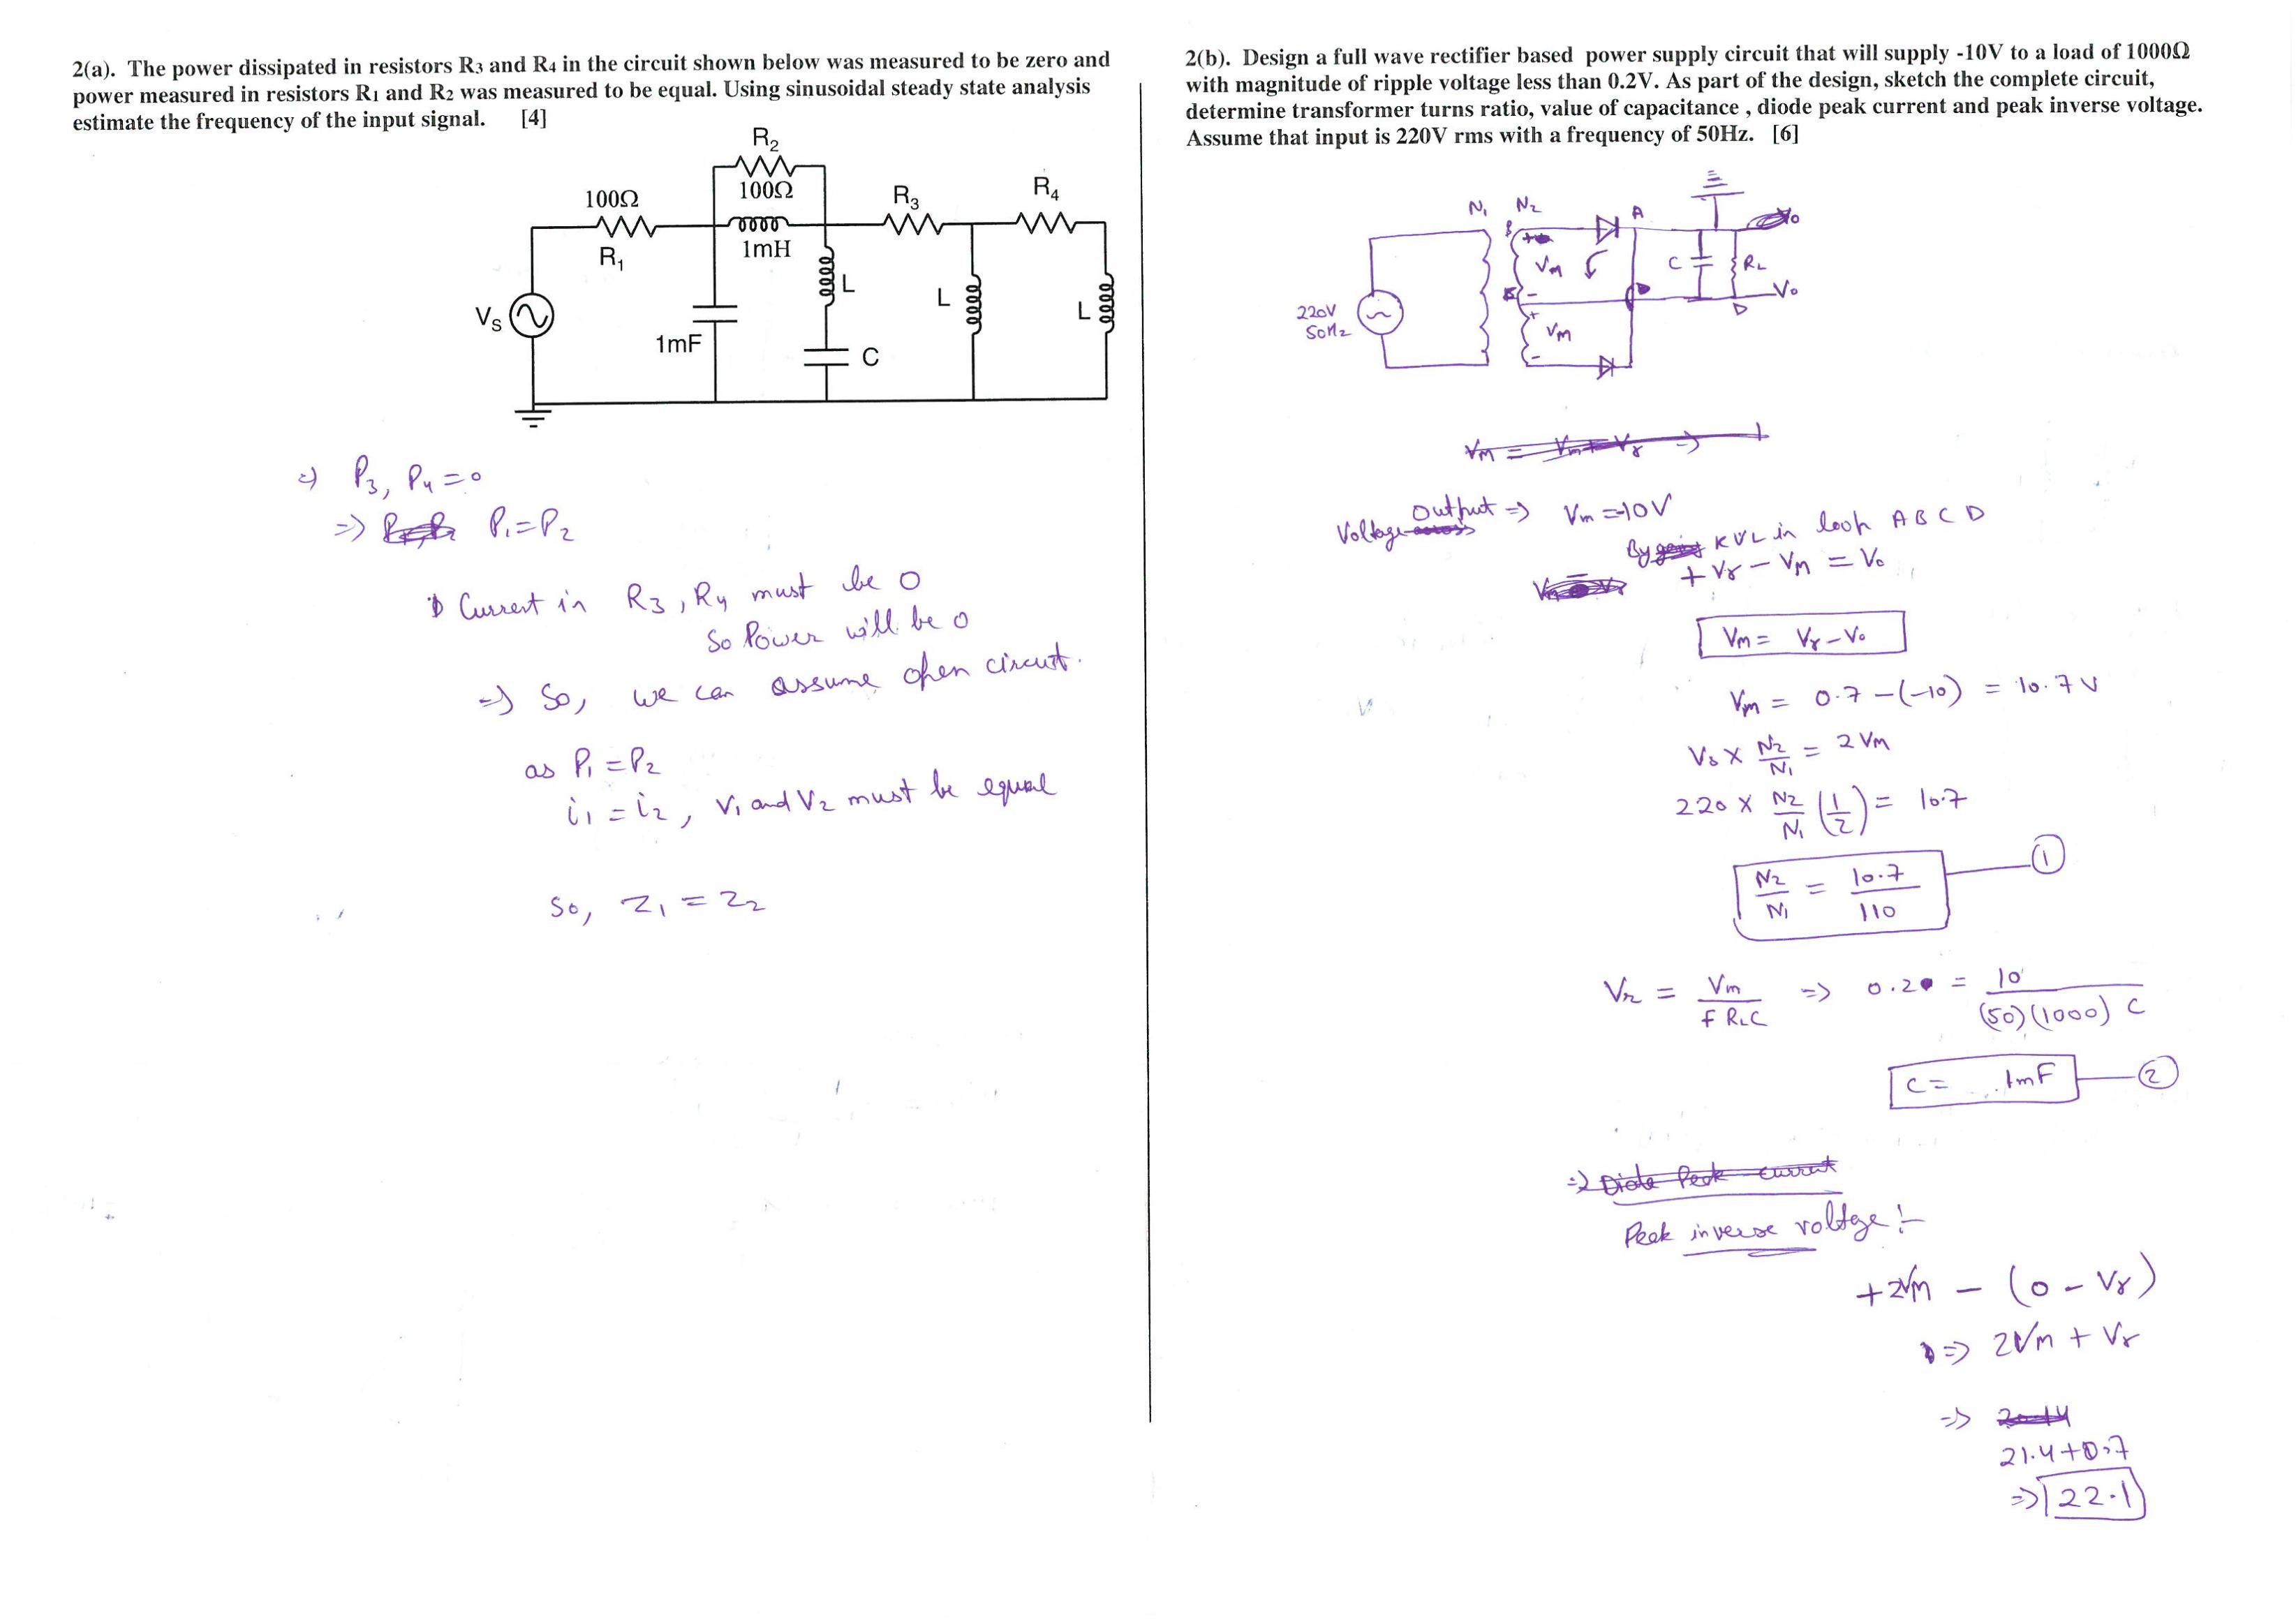 2(a). The power dissipated in resistors R3 and R4 in the circuit shown below was measured to be zero and
power measured in resistors R1 and R2 was measured to be equal. Using sinusoidal steady state analysis
estimate the frequency of the input signal. [4]
R2
100Ω
100Ω
R1
1mH
R3
R4
L
L
L
Vs
1mF
C
=) P3, P4 = 0
=) P1 = P2
Current in R3, R4 must be 0
So Power will be 0
=) So, we can assume open circuit.
as P1 = P2
i1 = i2, V1 and V2 must be equal
So, Z1 = Z2
2(b). Design a full wave rectifier based power supply circuit that will supply -10V to a load of 1000Ω
with magnitude of ripple voltage less than 0.2V. As part of the design, sketch the complete circuit,
determine transformer turns ratio, value of capacitance , diode peak current and peak inverse voltage.
Assume that input is 220V rms with a frequency of 50Hz. [6]
N1 N2
A
B
VM
C
RL
Vo
D
220V
50Hz
VM
Output => Vm = -10V
Voltage
By KVL in loop A B C D
+ Vγ - VM = Vo
Vm = Vγ - Vo
Vm = 0.7 - (-10) = 10.7 V
Vs × N2/N1 = 2 VM
220 × N2/N1 (1/2) = 10.7
N2/N1 = 10.7/110 ①
Vr = Vm/f RLC => 0.2 = 10/(50)(1000) C
C = .1mF ②
=) Diode Peak current
Peak inverse voltage :-
+2Vm - (0 - Vγ)
=> 2Vm + Vγ
=>
21.4 + 0.7
=> 22.1